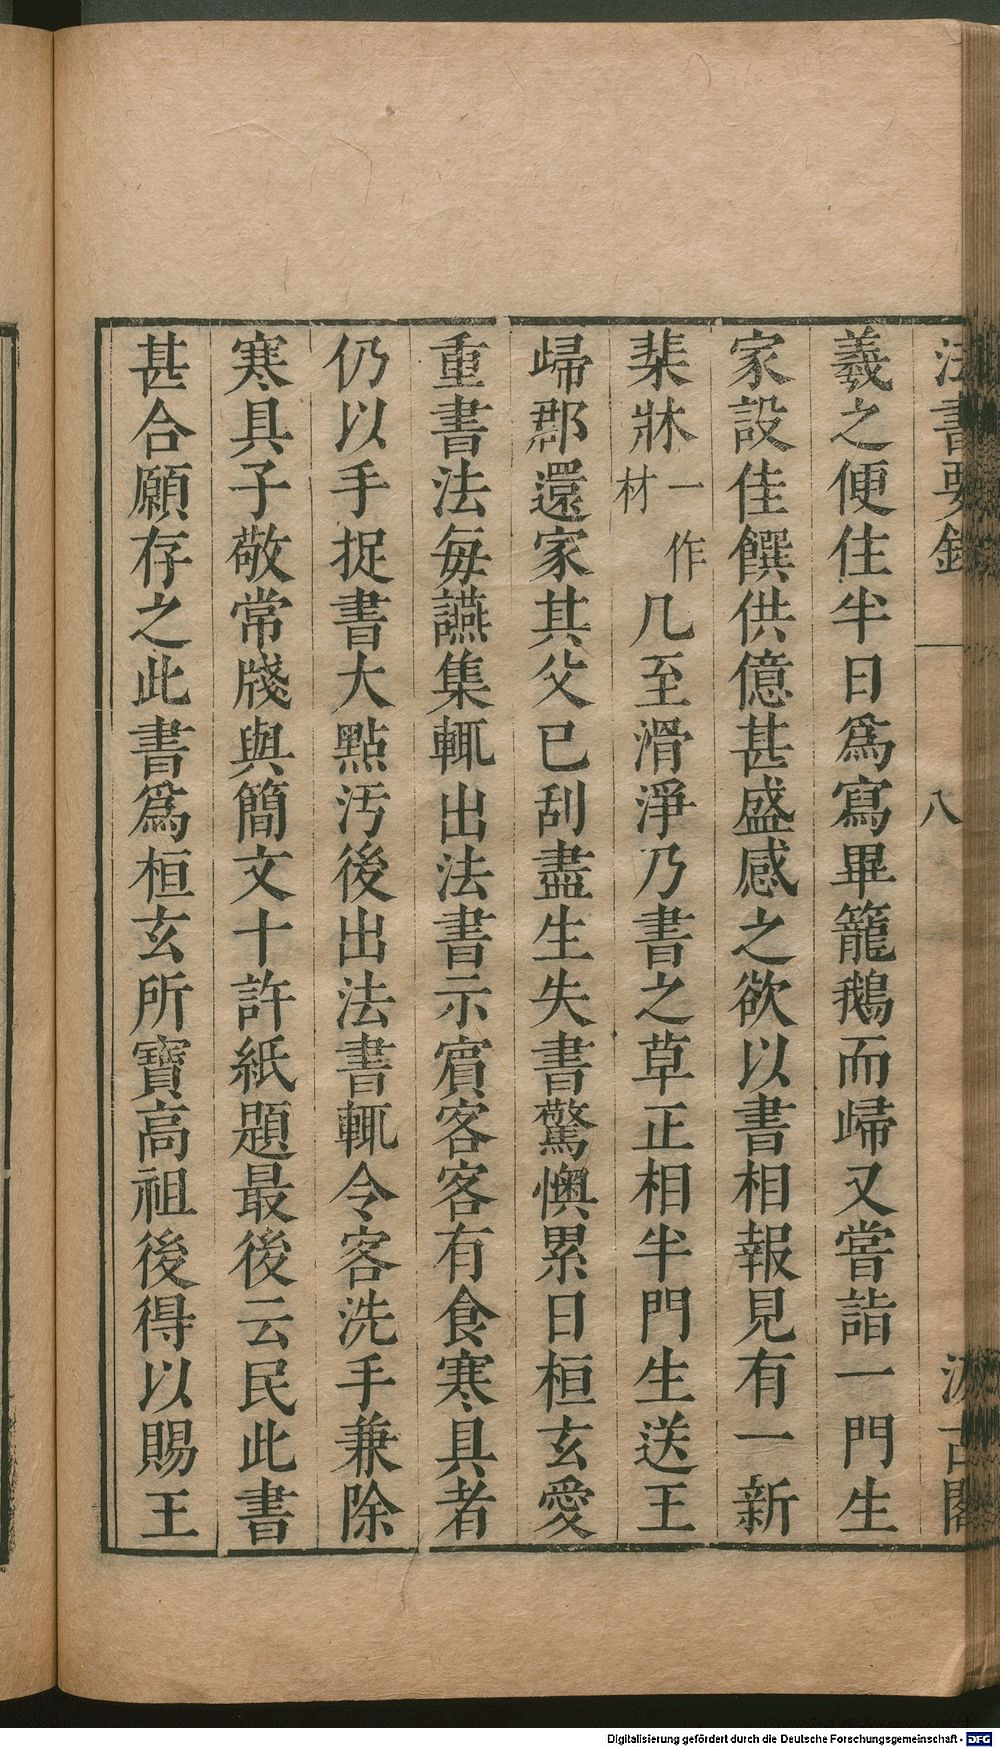 羲之便住半日爲寫畢籠鵝而歸又嘗詣一門生
家設佳饌供億甚盛感之欲以書相報見有一新
棐牀一作材几至滑淨乃書之草正相半門生送王
歸郡還家其父已刮盡生失書驚懊累日桓玄愛
重書法每讌集輒出法書示賔客客有食寒具者
仍以手捉書大點汚後出法書輒令客洗手兼除
寒具子敬常牋與簡文十許紙題最後云民此書
甚合願存之此書爲桓玄所寶高祖後得以賜王
法書要錄
八
汲古閣
Digitalisierung gefördert durch die Deutsche Forschungsgemeinschaft - DFG